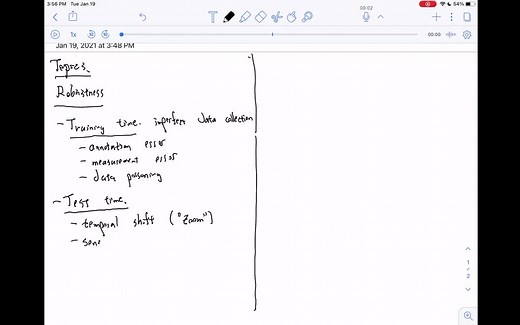 3:56 PM Tue Jan 19
54%
00:02
1x
00:00
Jan 19, 2021 at 3:48 PM
Topics
Robustness
- Training time. imperfect data collection
- annotation error
- measurement error
- data poisoning
- Test time.
- temporal shift ("Zoom")
- some
1
2